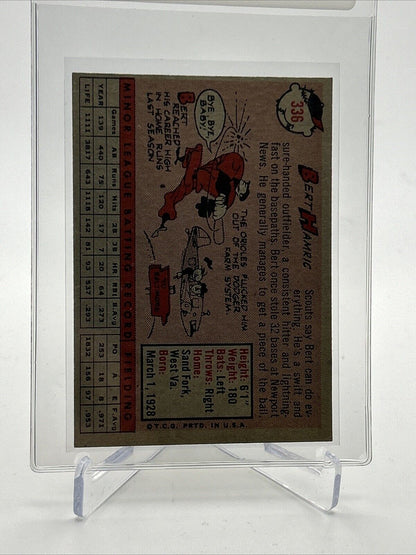 336
BERT HAMRIC
Scouts say Bert can do ev-
erything. He's a swift and
sure-handed outfielder, a consistent hitter and lightning-
fast on the basepaths. Bert once stole 32 bases at Newport
News. He generally manages to get a piece of the ball.
BYE, BYE,
BABY!
BERT
REACHED
HIS CAREER HIGH
IN HOME RUNS
LAST SEASON
THE ORIOLES PLUCKED HIM
OUT OF THE DODGER
FARM SYSTEM.
Height: 6'1"
Weight: 180
Bats: Left
Throws: Right
Home:
Sand Fork,
West Va.
Born:
March 1, 1928
MINOR LEAGUE BATTING RECORD FIELDING
Games AB Runs Hits 2B 3B HR RBI B.Avg. PO A E F.Avg.
YEAR 139 440 75 125 20 7 20 64 .273 253 8 8 .971
LIFE 1111 3817 643 1118 142 81 93 537 .293 1832 158 97 .953
©T.C.G. PRTD. IN U.S.A.